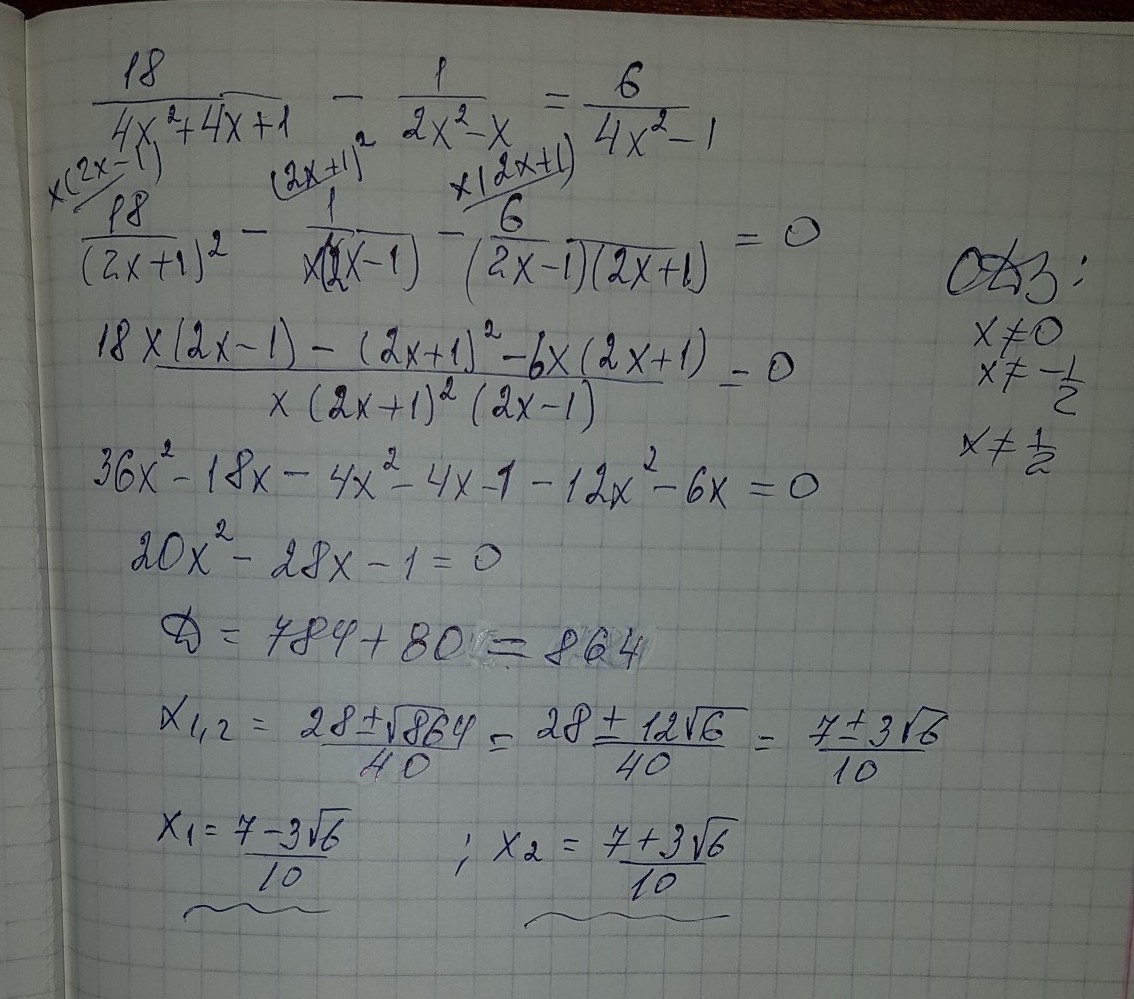 18/(4x²+4x+1) - 1/(2x²-x) = 6/(4x²-1)
x(2x-1) (2x+1)² x(2x+1)
18/(2x+1)² - 1/(x(2x-1)) - 6/((2x-1)(2x+1)) = 0
(18x(2x-1) - (2x+1)² - 6x(2x+1))/(x(2x+1)²(2x-1)) = 0
36x² - 18x - 4x² - 4x - 1 - 12x² - 6x = 0
20x² - 28x - 1 = 0
D = 784 + 80 = 864
x1,2 = (28 ± √864)/40 = (28 ± 12√6)/40 = (7 ± 3√6)/10
x1 = (7 - 3√6)/10 ; x2 = (7 + 3√6)/10
ОДЗ:
x ≠ 0
x ≠ -1/2
x ≠ 1/2